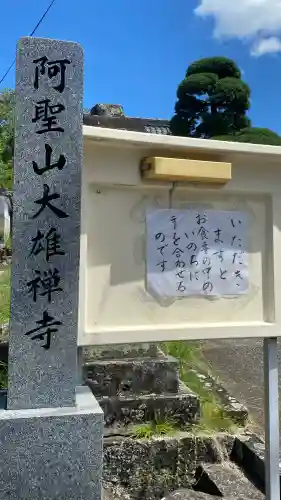 阿聖山大雄禅寺
いただき
ますと
お食事の中の
いのちに
手を合わせる
のです